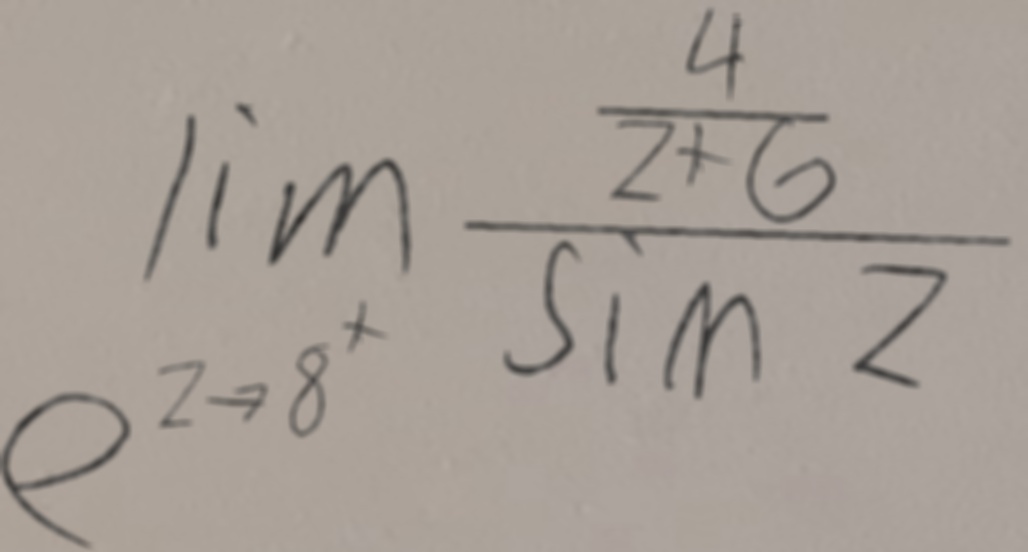 e^{\lim_{z \to 8^+} \frac{\frac{4}{z+6}}{\sin z}}